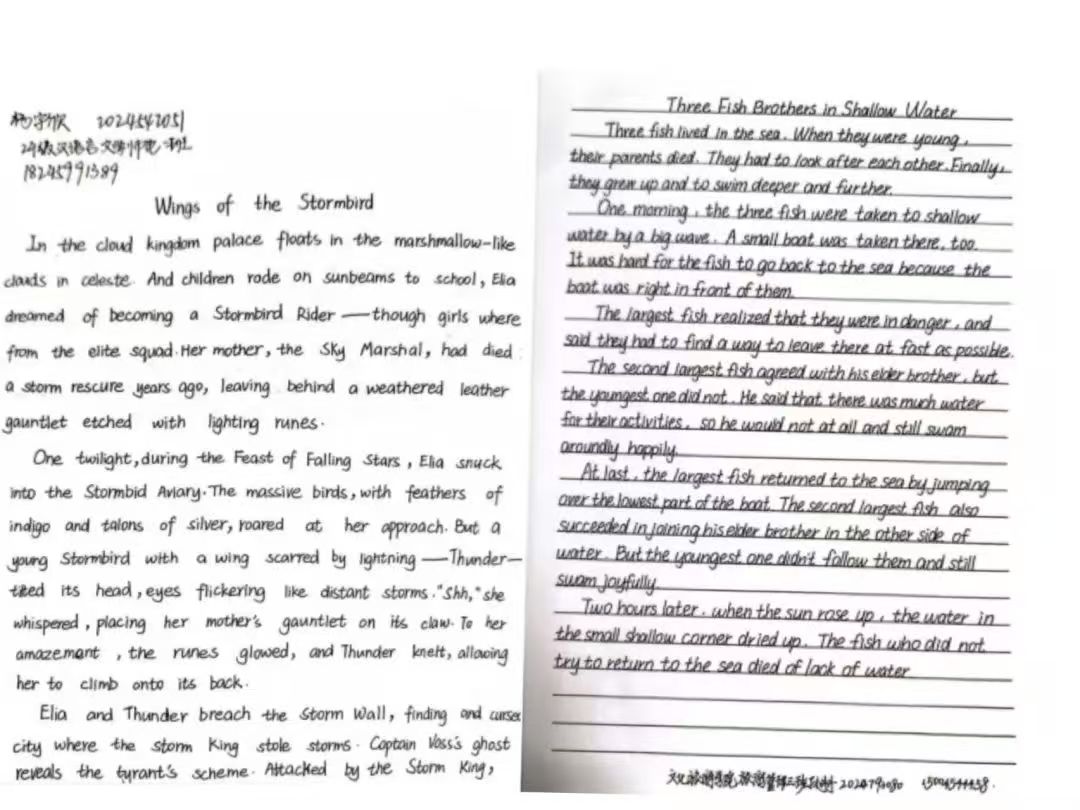 2024542051
18245991389
Wings of the Stormbird
In the cloud kingdom palace floats in the marshmallow-like
clouds in celeste. And children rode on sunbeams to school, Elia
dreamed of becoming a Stormbird Rider — though girls where
from the elite squad. Her mother, the Sky Marshal, had died
a storm rescue years ago, leaving behind a weathered leather
gauntlet etched with lighting runes.
One twilight, during the Feast of Falling Stars, Elia snuck
into the Stormbid Aviary. The massive birds, with feathers of
indigo and talons of silver, roared at her approach. But a
young Stormbird with a wing scarred by lightning — Thunder—
its head, eyes flickering like distant storms. "Shh," she
whispered, placing her mother's gauntlet on its claw. To her
amazement, the runes glowed, and Thunder knelt, allowing
her to climb onto its back.
Elia and Thunder breach the Storm Wall, finding and
city where the storm King stole storms. Captain Voss's ghost
reveals the tyrant's scheme. Attacked by the Storm King,
Three Fish Brothers in Shallow Water
Three fish lived in the sea. When they were young,
their parents died. They had to look after each other. Finally,
they grew up and to swim deeper and further.
One morning, the three fish were taken to shallow
water by a big wave. A small boat was taken there, too.
It was hard for the fish to go back to the sea because the
boat was right in front of them.
The largest fish realized that they were in danger, and
said they had to find a way to leave there at fast as possible.
The second largest fish agreed with his elder brother, but
the youngest one did not. He said that there was much water
for their activities, so he would not at all and still swam
aroundly happily.
At last, the largest fish returned to the sea by jumping
over the lowest part of the boat. The second largest fish also
succeeded in joining his elder brother in the other side of
water. But the youngest one didn't follow them and still
swam joyfully
Two hours later, when the sun rose up, the water in
the small shallow corner dried up. The fish who did not
try to return to the sea died of lack of water